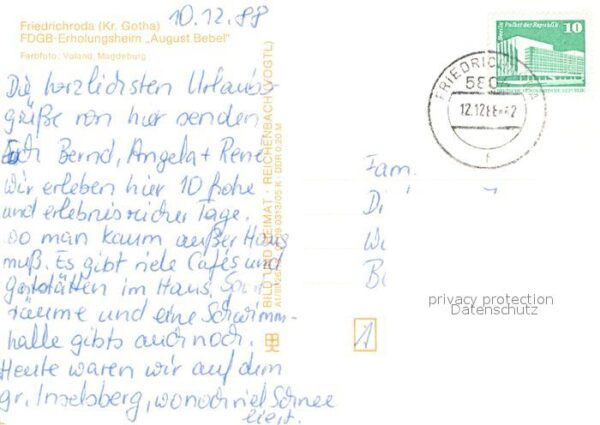 10.12.88
Friedrichroda (Kr. Gotha)
FDGB-Erholungsheim „August Bebel"
Farbfoto: Voland, Magdeburg
Die herzlichsten Urlaubs-
grüße von hier senden
Euch Bernd, Angela + René
Wir erleben hier 10 frohe
und erlebnisreiche Tage.
wo man kaum außer Haus
muß. Es gibt viele Cafés und
gaststätten im Haus,
räume und eine Schwimm-
halle gibts auch noch.
Heute waren wir auf dem
gr. Inselsberg, wo noch viel Schnee
liegt.
BILD UND HEIMAT · REICHENBACH (VOGTL)
DDR 0,20 M
Berlin · Palast der Republik
10
FRIEDRICHRODA
580
12.12.88
Fam.
D
W
B
1
privacy protection
Datenschutz